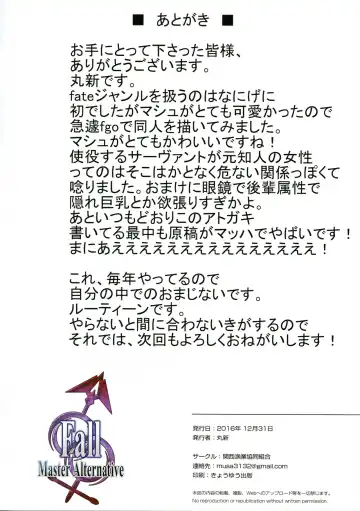 ■ あとがき ■
お手にとって下さった皆様、
ありがとうございます。
丸新です。
fateジャンルを扱うのはなにげに
初でしたがマシュがとても可愛かったので
急遽fgoで同人を描いてみました。
マシュがとてもかわいいですね!
使役するサーヴァントが元知人の女性
ってのはそこはかとなく危ない関係っぽくて
唸りました。おまけに眼鏡で後輩属性で
隠れ巨乳とか欲張りすぎかよ。
あといつもどおりこのアトガキ
書いてる最中も原稿がマッハでやばいです!
まにあえええええええええええええええ!
これ、毎年やってるので
自分の中でのおまじないです。
ルーティーンです。
やらないと間に合わないきがするので
それでは、次回もよろしくおねがいします!
Fall
Master Alternative
発行日:2016年 12月31日
発行者:丸新
サークル:関西漁業協同組合
連絡先:musa3132@gmail.com
印刷:きょうゆう出版
本誌の内容の転載、複製、Webへのアップロード等を一切禁じます。
No reproduction or republication without written permission.